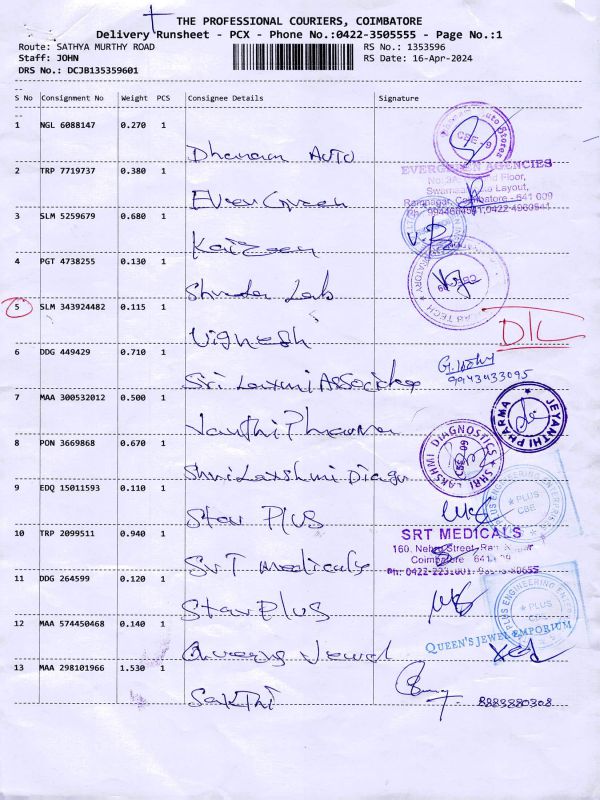 THE PROFESSIONAL COURIERS, COIMBATORE
Delivery Runsheet - PCX - Phone No.:0422-3505555 - Page No.:1
Route: SATHYA MURTHY ROAD RS No.: 1353596
Staff: JOHN RS Date: 16-Apr-2024
DRS No.: DCJB135359601
S No Consignment No Weight PCS Consignee Details Signature
1 NGL 6088147 0.270 1
Auto Stores
CBE - 9
Auto
2 TRP 7719737 0.380 1
EVERGREEN AGENCIES
Floor,
Layout,
Ramnagar, Coimbatore - 641 009
Ever Green
3 SLM 5259679 0.680 1
Kaizen
4 PGT 4738255 0.130 1
Lab
5 SLM 343924482 0.115 1
Vignesh
D/C
6 DDG 449429 0.710 1
Sri Laxmi Associates
9943433095
7 MAA 300532012 0.500 1
Pharma
JEYANTHI PHARMA
8 PON 3669868 0.670 1
Shri Laxshmi Diagn
SHRI LAKSHMI DIAGNOSTICS
9 EDQ 15011593 0.110 1
Star Plus
PLUS ENGINEERING ENTERPRISE
PLUS
CBE
10 TRP 2099511 0.940 1
SRT MEDICALS
160, Nehru Street, Ram Nagar
Coimbatore
SRT Medicals
11 DDG 264599 0.120 1
Star Plus
PLUS ENGINEERING ENTER
PLUS
12 MAA 574450468 0.140 1
QUEEN'S JEWEL EMPORIUM
Queens Jewel
13 MAA 298101966 1.530 1
Sakthi
8883880308